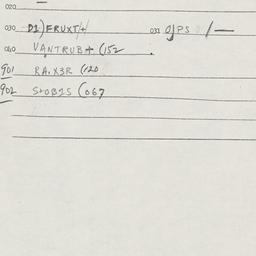 020
030 D1)ERUXT/+ 033 OJPS /—
060 VANTRUB+ (152
901 RA.X3R (120
902 S+OB2S (067